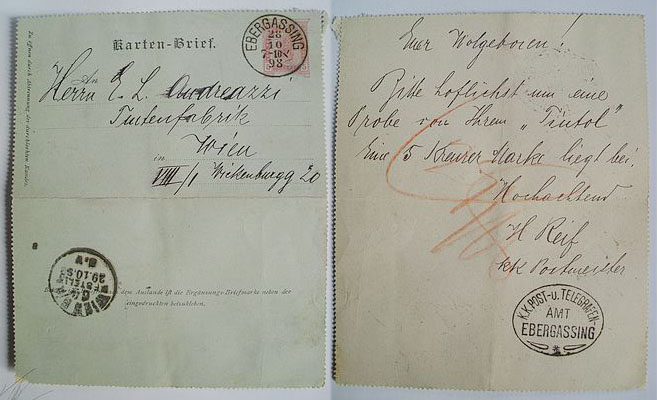 Karten-Brief.
EBERGASSING
28
10
93
An
Herrn E. L. Andreazzi
Tintenfabrik
in Wien
VIII/1 Wickenburgg 20
dem Auslande ist die Ergänzungs-Briefmarke neben der
eingedruckten aufzukleben.
WIEN
BESTELLT
29.10.93
Zu öffnen durch Abtrennung des durchlochten Randes.
Euer Wolgeboren!
Bitte höflichst um eine
Probe von Ihrem „Tintol"
Eine 5 Kreuzer Marke liegt bei.
Hochachtend
H Reif
kk Postmeister
K.K. POST-u. TELEGRAFEN-
AMT
EBERGASSING